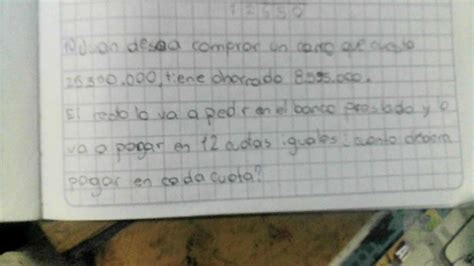 12550
10 Juan desea comprar un carro que cuesta
25300.000, tiene ahorrado 8595.000.
El resto lo va a pedir en el banco prestado y o
va a pagar en 12 cuotas iguales: cuanto debera
pagar en cada cuota?